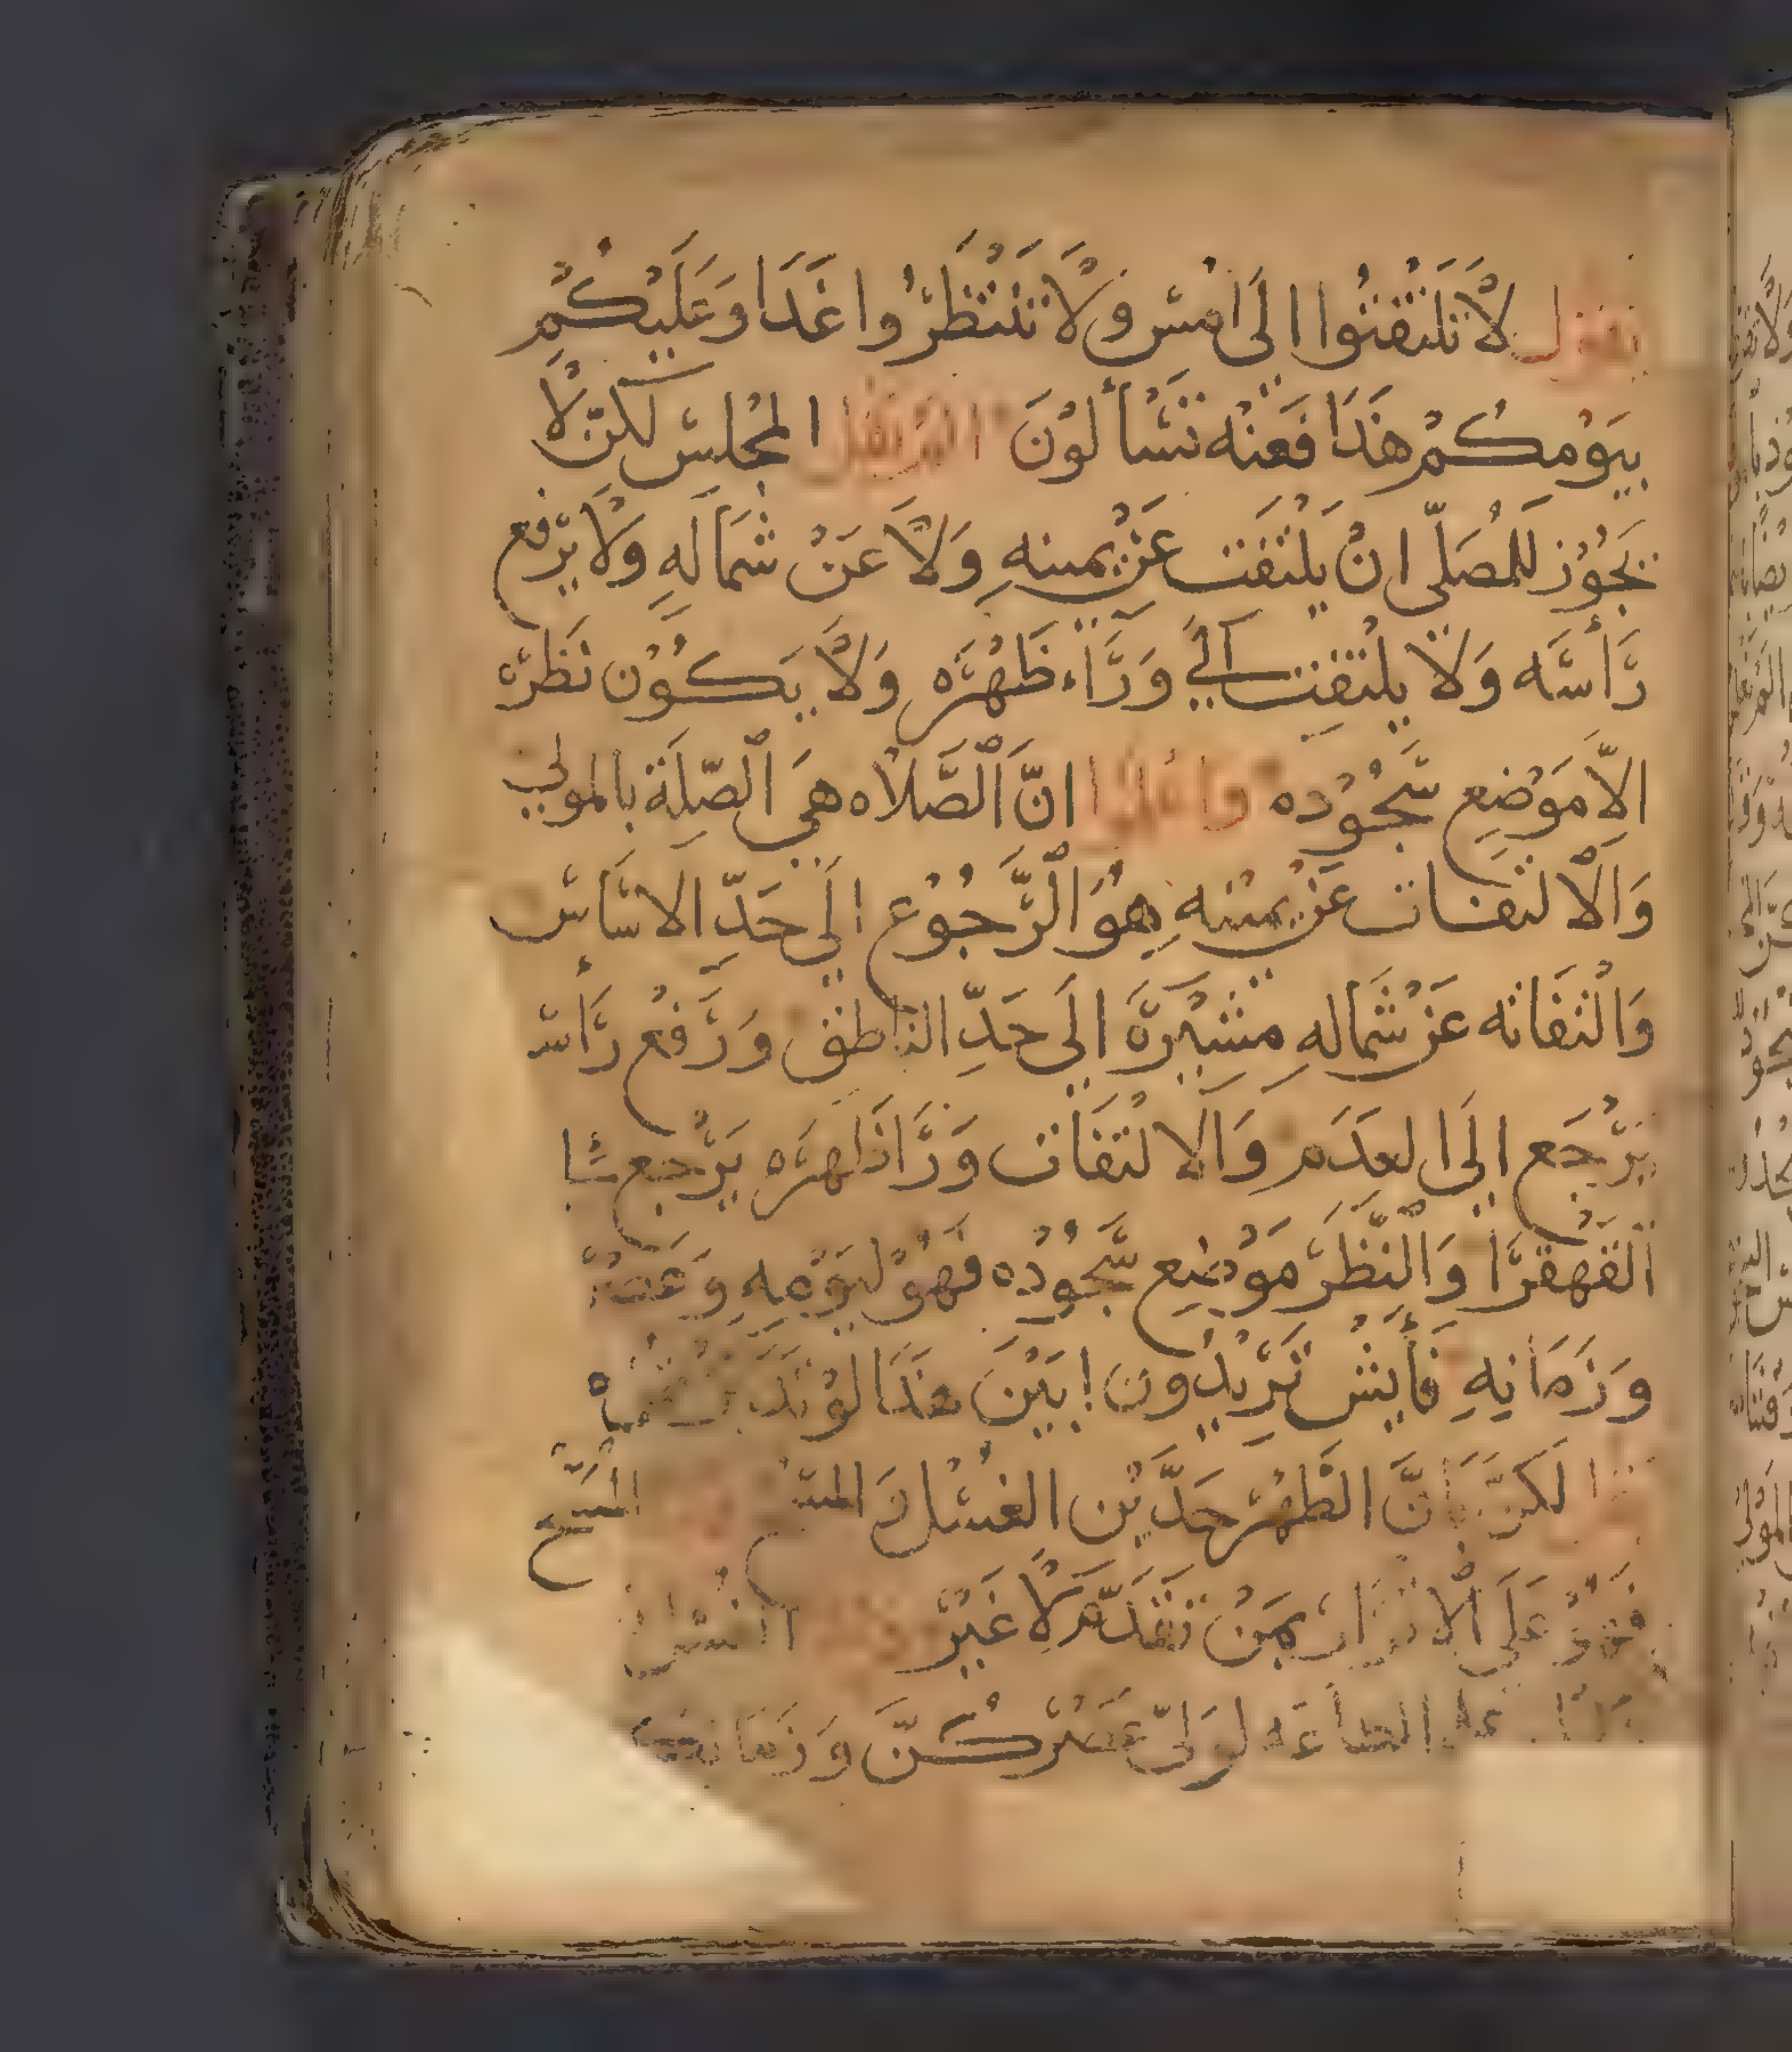 يقول لَا تَلتفتُوا الَى امْس وَلَا تَنْتَظرُوا غَدَا وَعَلَيْكُمْ
بيَوْمكُمْ هَذَا فَعَنْه تَسْأَلوْنَ المجْلس لَكنّ لَا
يَجُوْز للمُصَلّي انْ يَلْتفَت عَنْ يمينهِ وَلَا عَنْ شمَالَهِ وَلَا يَرْفع
رَأسَه وَلَا يلْتفِت الَي وَرَاء ظَهْرَه وَلَا يَكُوْن نَظرَه
الّا مَوْضِع سُجُوْده واعلموا انَّ الصَّلَاه هيَ الصّلَة بالمولي
وَالالتفات عَنْ يمينهِ هُوَ الرَّجُوْع الَي حَدّ الاسَاس
وَالْتفَاته عَنْ شمَالهِ مشيْرَة الَى حَدِّ الناطق وَرَفْع رَأس
يَرْجَع الَى العَدَم وَالالْتفَات وَرَا ظَاهرَه يَرْجع
القَهقرَا وَالنظَرَ مَوْضِع سُجُوْده فهُوَ ليَوْمهِ
وَزَمَانهِ فَأَيش تَرِيْدُون ابيَنَ هَذَا
لَكنَّ انَّ الطَهْر حَدَّيْن الغسْل وَ المسْح
عَلَى بمَنْ تقَدَّم لَا غَيْر
الطاعَه لوَلىّ عَصْركُنَّ